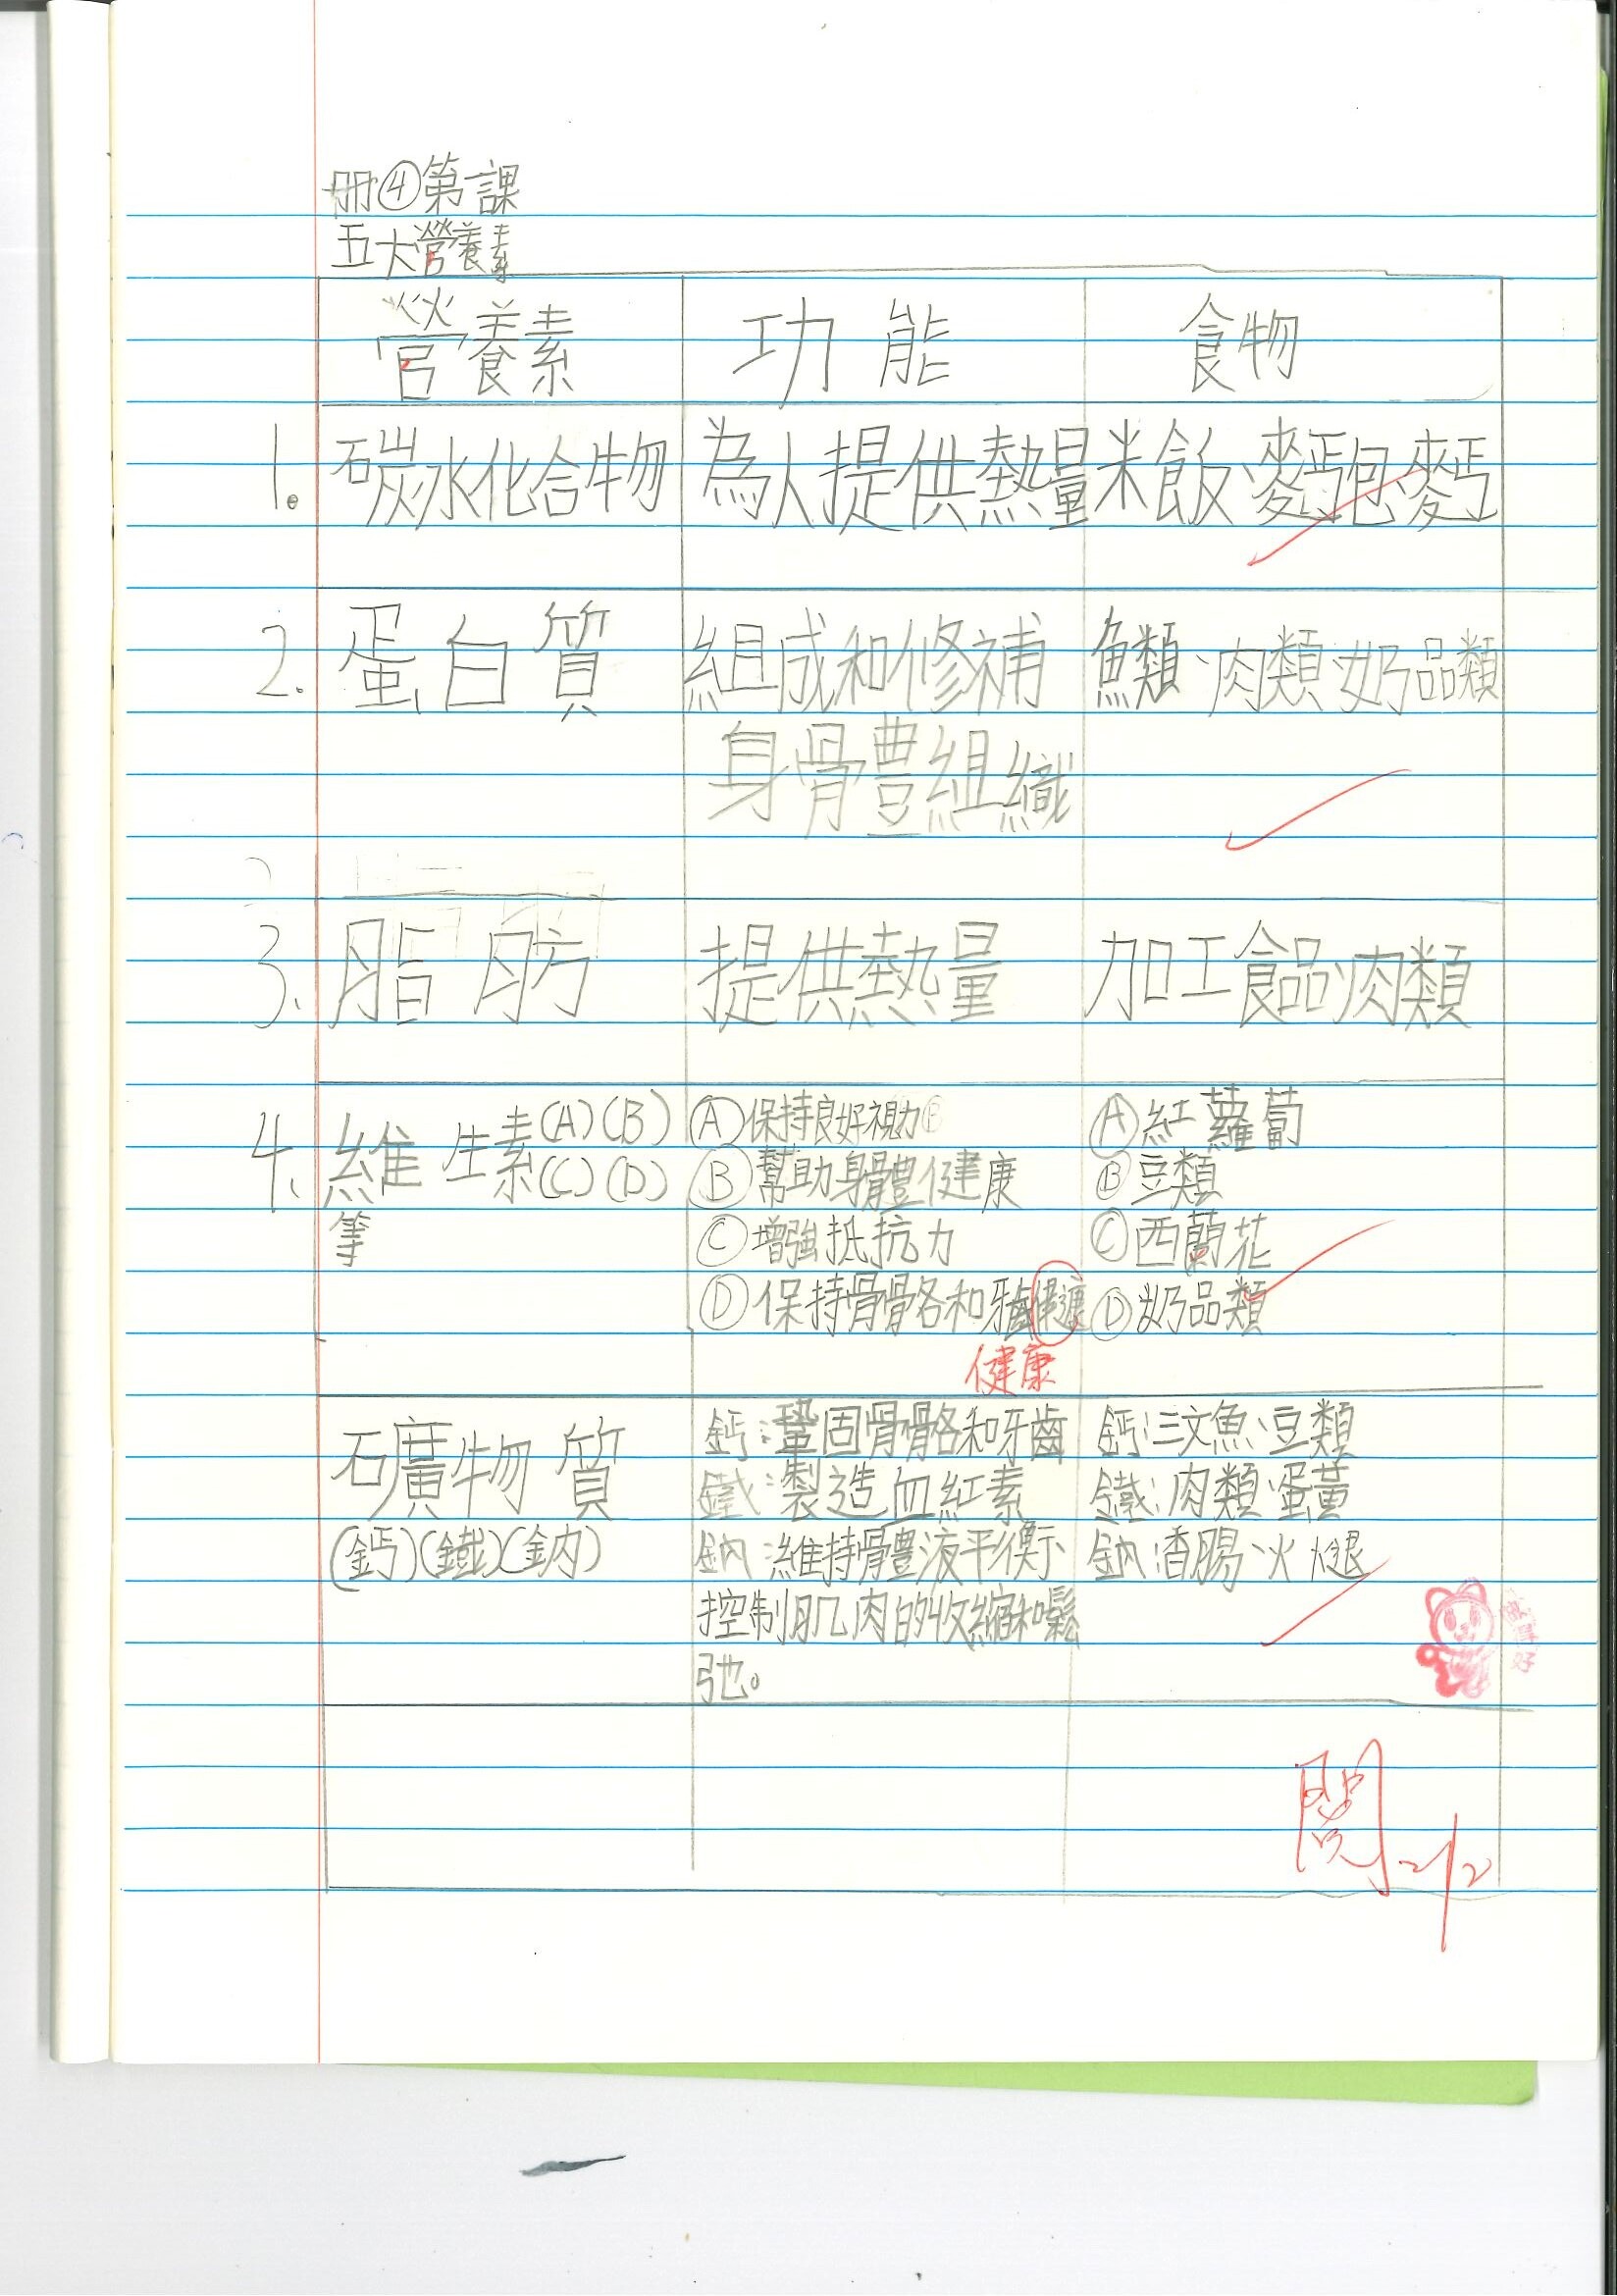 冊④第 課
五大營養素
營養素 功能 食物
1. 碳水化合物 為人提供熱量 米飯、麵包、麵
2. 蛋白質 組成和修補 魚類、肉類、奶品類
身體組織
3. 脂肪 提供熱量 加工食品、肉類
4. 維生素(A)(B) Ⓐ保持良好視力 Ⓐ紅蘿蔔
(C)(D) Ⓑ幫助身體健康 Ⓑ豆類
等 Ⓒ增強抵抗力 Ⓒ西蘭花
Ⓓ保持骨骼和牙齒 Ⓓ奶品類
健康
礦物質 鈣:鞏固骨骼和牙齒 鈣:三文魚、豆類
鐵:製造血紅素 鐵:肉類、蛋黃
(鈣)(鐵)(鈉) 鈉:維持體液平衡、 鈉:香腸、火腿
控制肌肉的收縮和鬆
弛。
閱 2/2